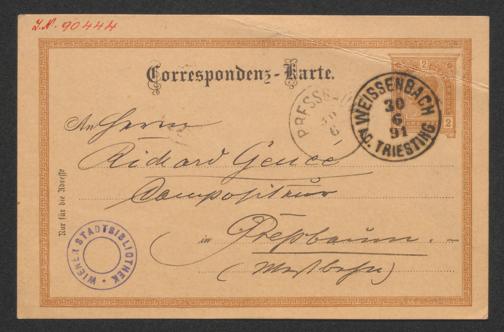 J.N. 90444
Correspondenz-Karte.
2
WEISSENBACH
30
6
91
A/C. TRIESTING
PRESSB
30
6
An Herrn
Richard Genée
Compositeur
in Preßbaum.
(Westbahn)
Nur für die Adresse
WIENER STADTBIBLIOTHEK
2